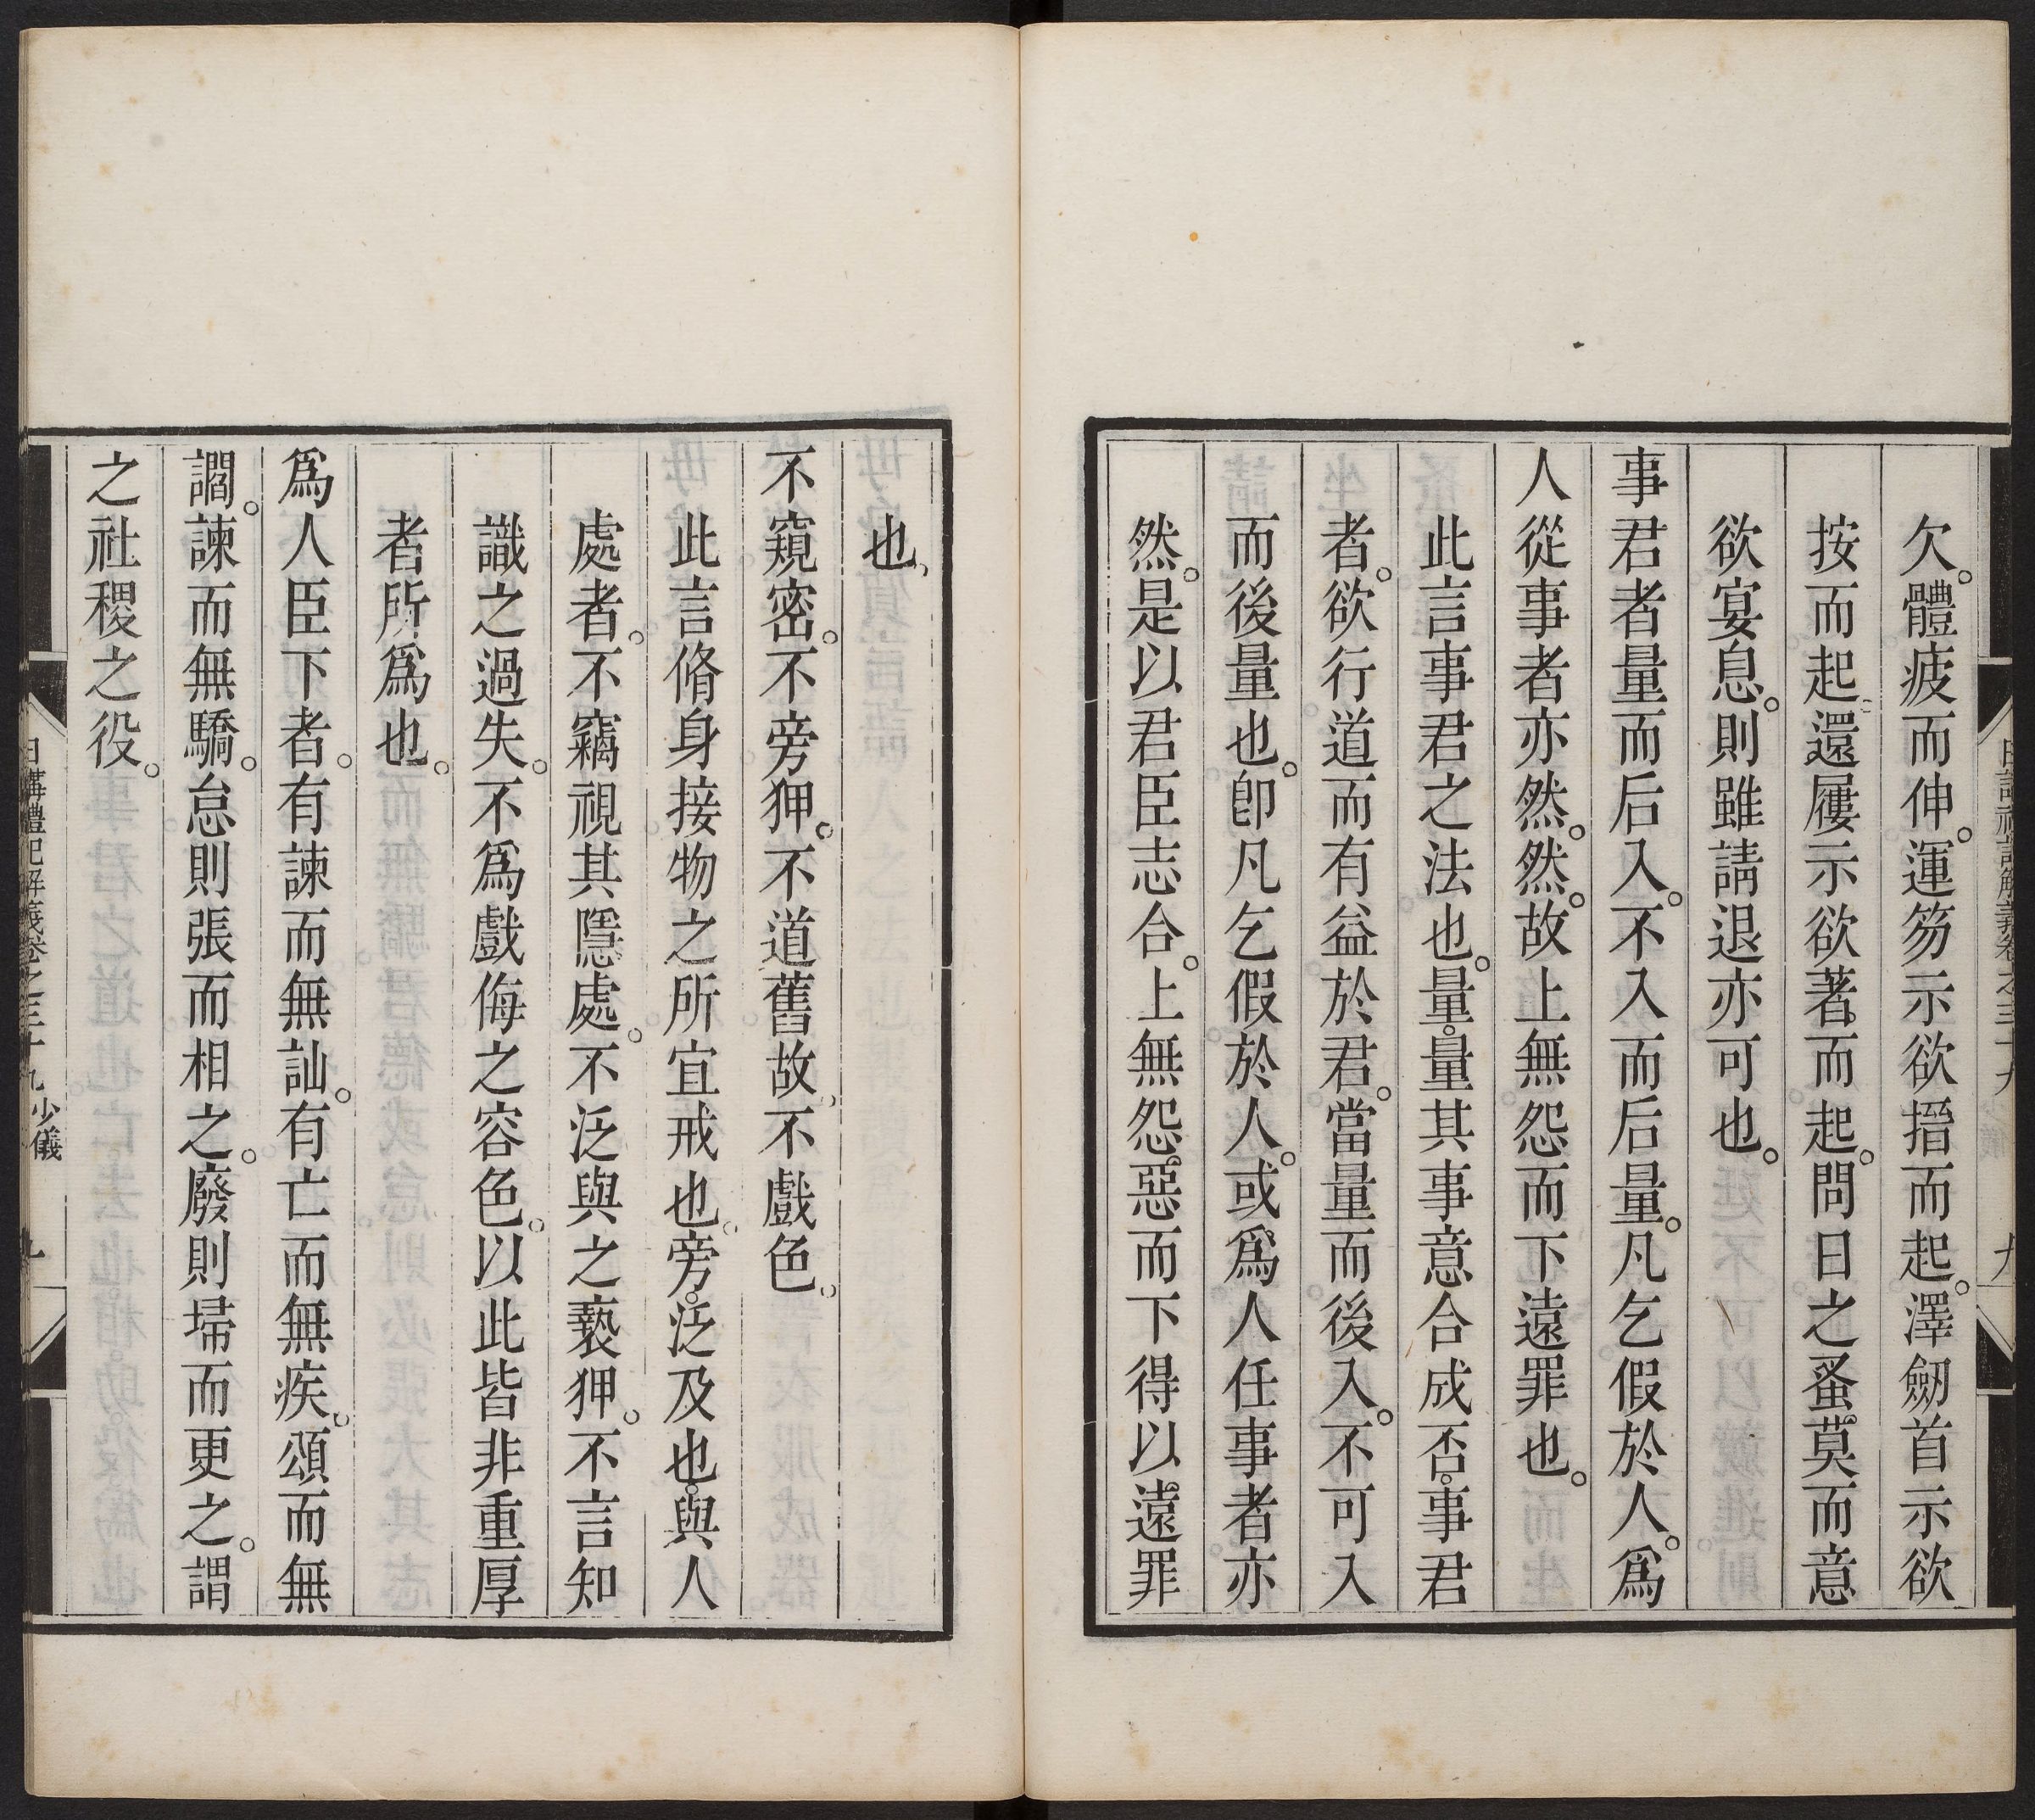 欠。體疲而伸。運笏示欲搢而起。澤劒首示欲
按而起。還屨示欲著而起。問日之蚤莫而意
欲宴息。則雖請退亦可也。
事君者量而后入。不入而后量。凡乞假於人。爲
人從事者亦然。然。故上無怨而下遠罪也。
此言事君之法也。量。量其事意合成否。事君
者。欲行道而有益於君。當量而後入。不可入
而後量也。卽凡乞假於人。或爲人任事者亦
然。是以君臣志合。上無怨惡而下得以遠罪
也。
不窺密。不旁狎。不道舊故。不戲色。
此言脩身接物之所宜戒也。旁。泛及也。與人
處者。不竊視其隱處。不泛與之褻狎。不言知
識之過失。不爲戲侮之容色。以此皆非重厚
者所爲也。
爲人臣下者。有諫而無訕。有亡而無疾。頌而無
讇。諫而無驕。怠則張而相之。廢則埽而更之。謂
之社稷之役。
日講禮記解義卷之三十九 少儀 九